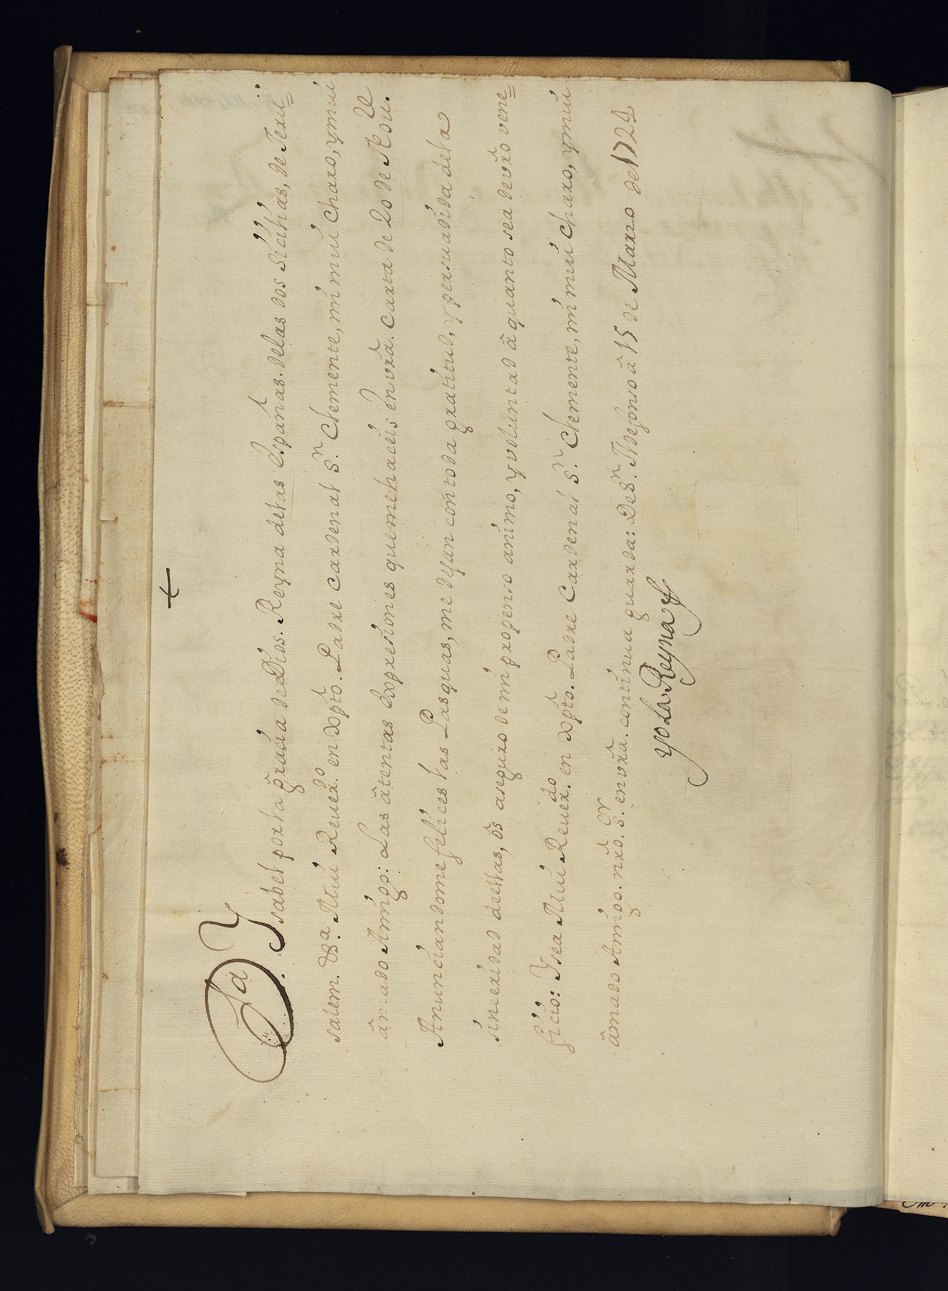 ✝
Dª Ysabel por la gracia de Dios. Reyna de las Españas. delas dos Sicilias, de Jeru=
salem. &ª. Mui Reuerᵈᵒ. en Xpto. Padre Cardenal Sⁿ. Clemente, mi mui Charo, y mui
âmado Amigo: Las âtentas Expresiones que me haceis en vrâ. Carta de 20 de Nouᵉ.
Anunciandome felices las Pasquas, me dejan con toda gratitud, y persuadida de la
sinceridad de ellas, ôs aseguro de mi propenso animo, y voluntad â quanto sea de vrô vene=
ficio: Y sea Mui Reuerᵈᵒ. en Xpto. Padre Cardenal Sⁿ. Clemente, mi mui Charo, y mui
âmado Amigo. nrô. Sᵒʳ. en vrâ. continua guarda: De Sⁿ. Ildefonso â 15 de Marzo de 1724
Yo La Reyna